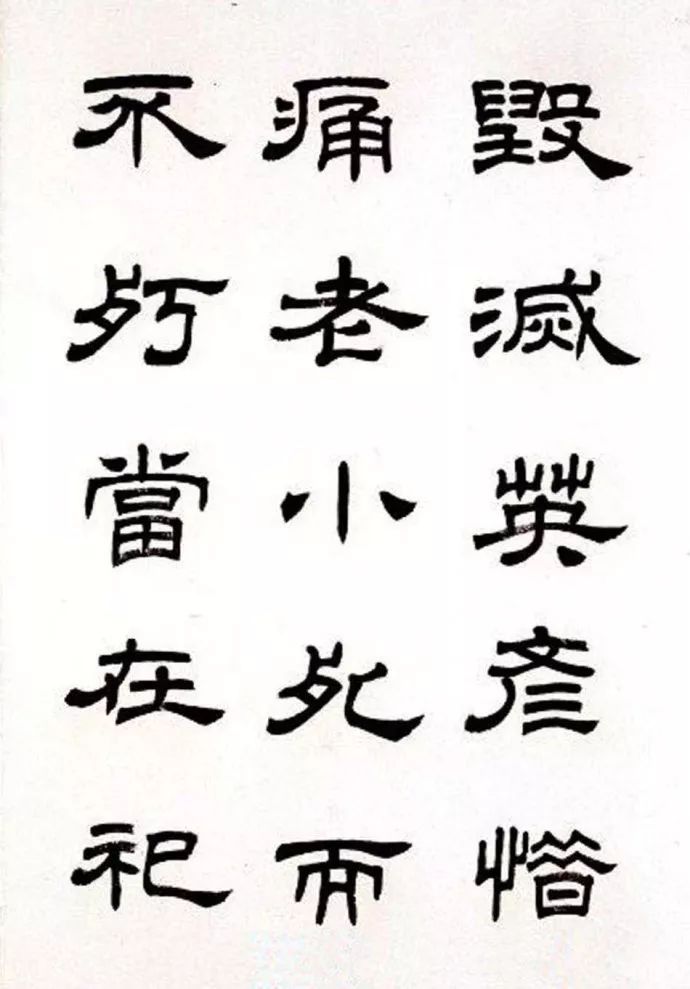 毀滅英彥惜
痛老小死而
不朽當在祀